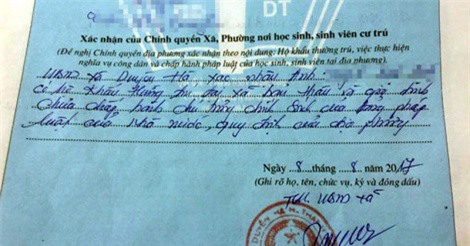 DT
Xác nhận của Chính quyền Xã, Phường nơi học sinh, sinh viên cư trú
(Đề nghị Chính quyền địa phương xác nhận theo nội dung: Hộ khẩu thường trú, việc thực hiện
nghĩa vụ công dân và chấp hành pháp luật của học sinh, sinh viên tại địa phương).
UBND xã Duyên Hà xác nhận Anh:
có hộ khẩu thường trú tại xã bản thân và gia đình
chưa chấp hành chủ trương chính sách của Đảng pháp
luật của Nhà nước, quy định của địa phương
Ngày 8 tháng 8 năm 2017
(Ghi rõ họ, tên, chức vụ, ký và đóng dấu)
TM. UBND xã
DUYÊN HÀ H. THANH